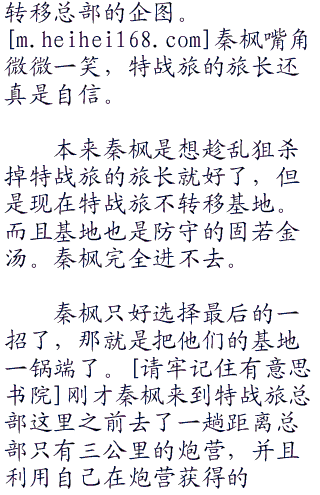 转移总部的企图。
[m.heihei168.com]秦枫嘴角
微微一笑，特战旅的旅长还
真是自信。
本来秦枫是想趁乱狙杀
掉特战旅的旅长就好了，但
是现在特战旅不转移基地。
而且基地也是防守的固若金
汤。秦枫完全进不去。
秦枫只好选择最后的一
招了，那就是把他们的基地
一锅端了。[请牢记住有意思
书院]刚才秦枫来到特战旅总
部这里之前去了一趟距离总
部只有三公里的炮营，并且
利用自己在炮营获得的